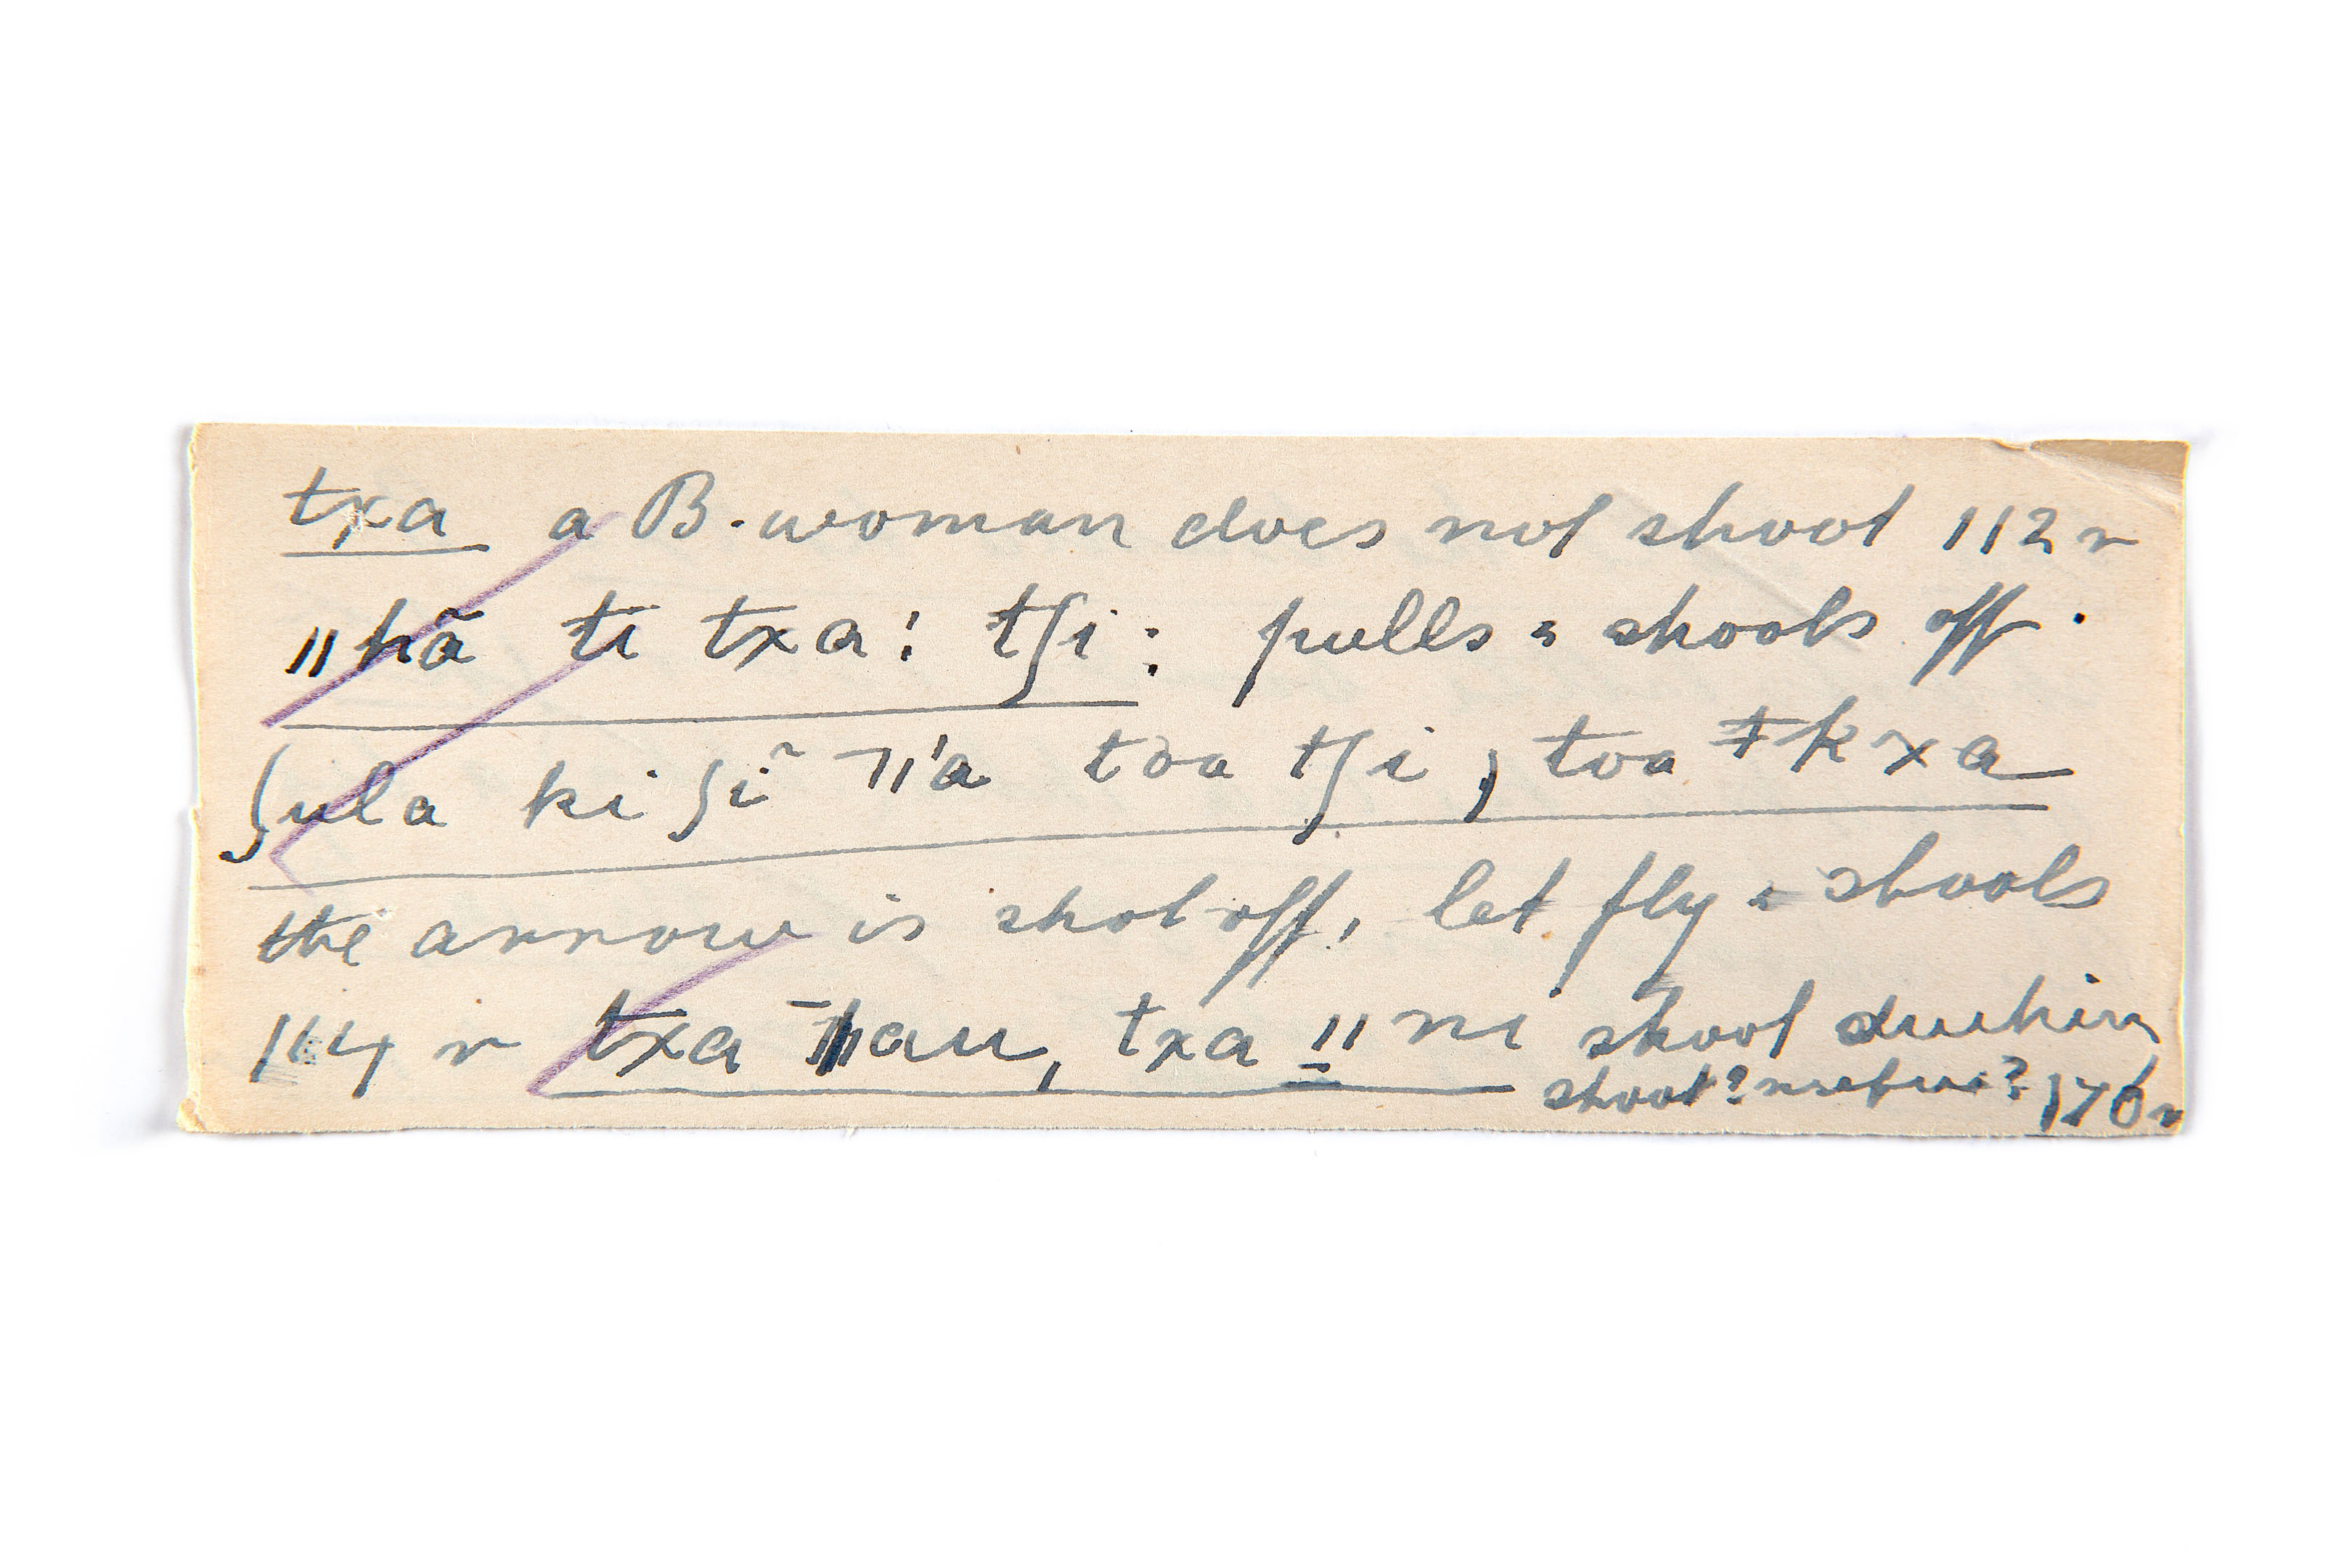 txa a B. woman does not shoot 112 r
ǁhã ti txa: tʃi: pulls = shoots off.
ʃula ki ʃĩ ¬ǁ'a toa tʃi, toa ǂkxa
the arrow is shot off, let fly = shoots
114 r txa ¯ǁau, txa ǁ ni shoot
shoot? 176 r